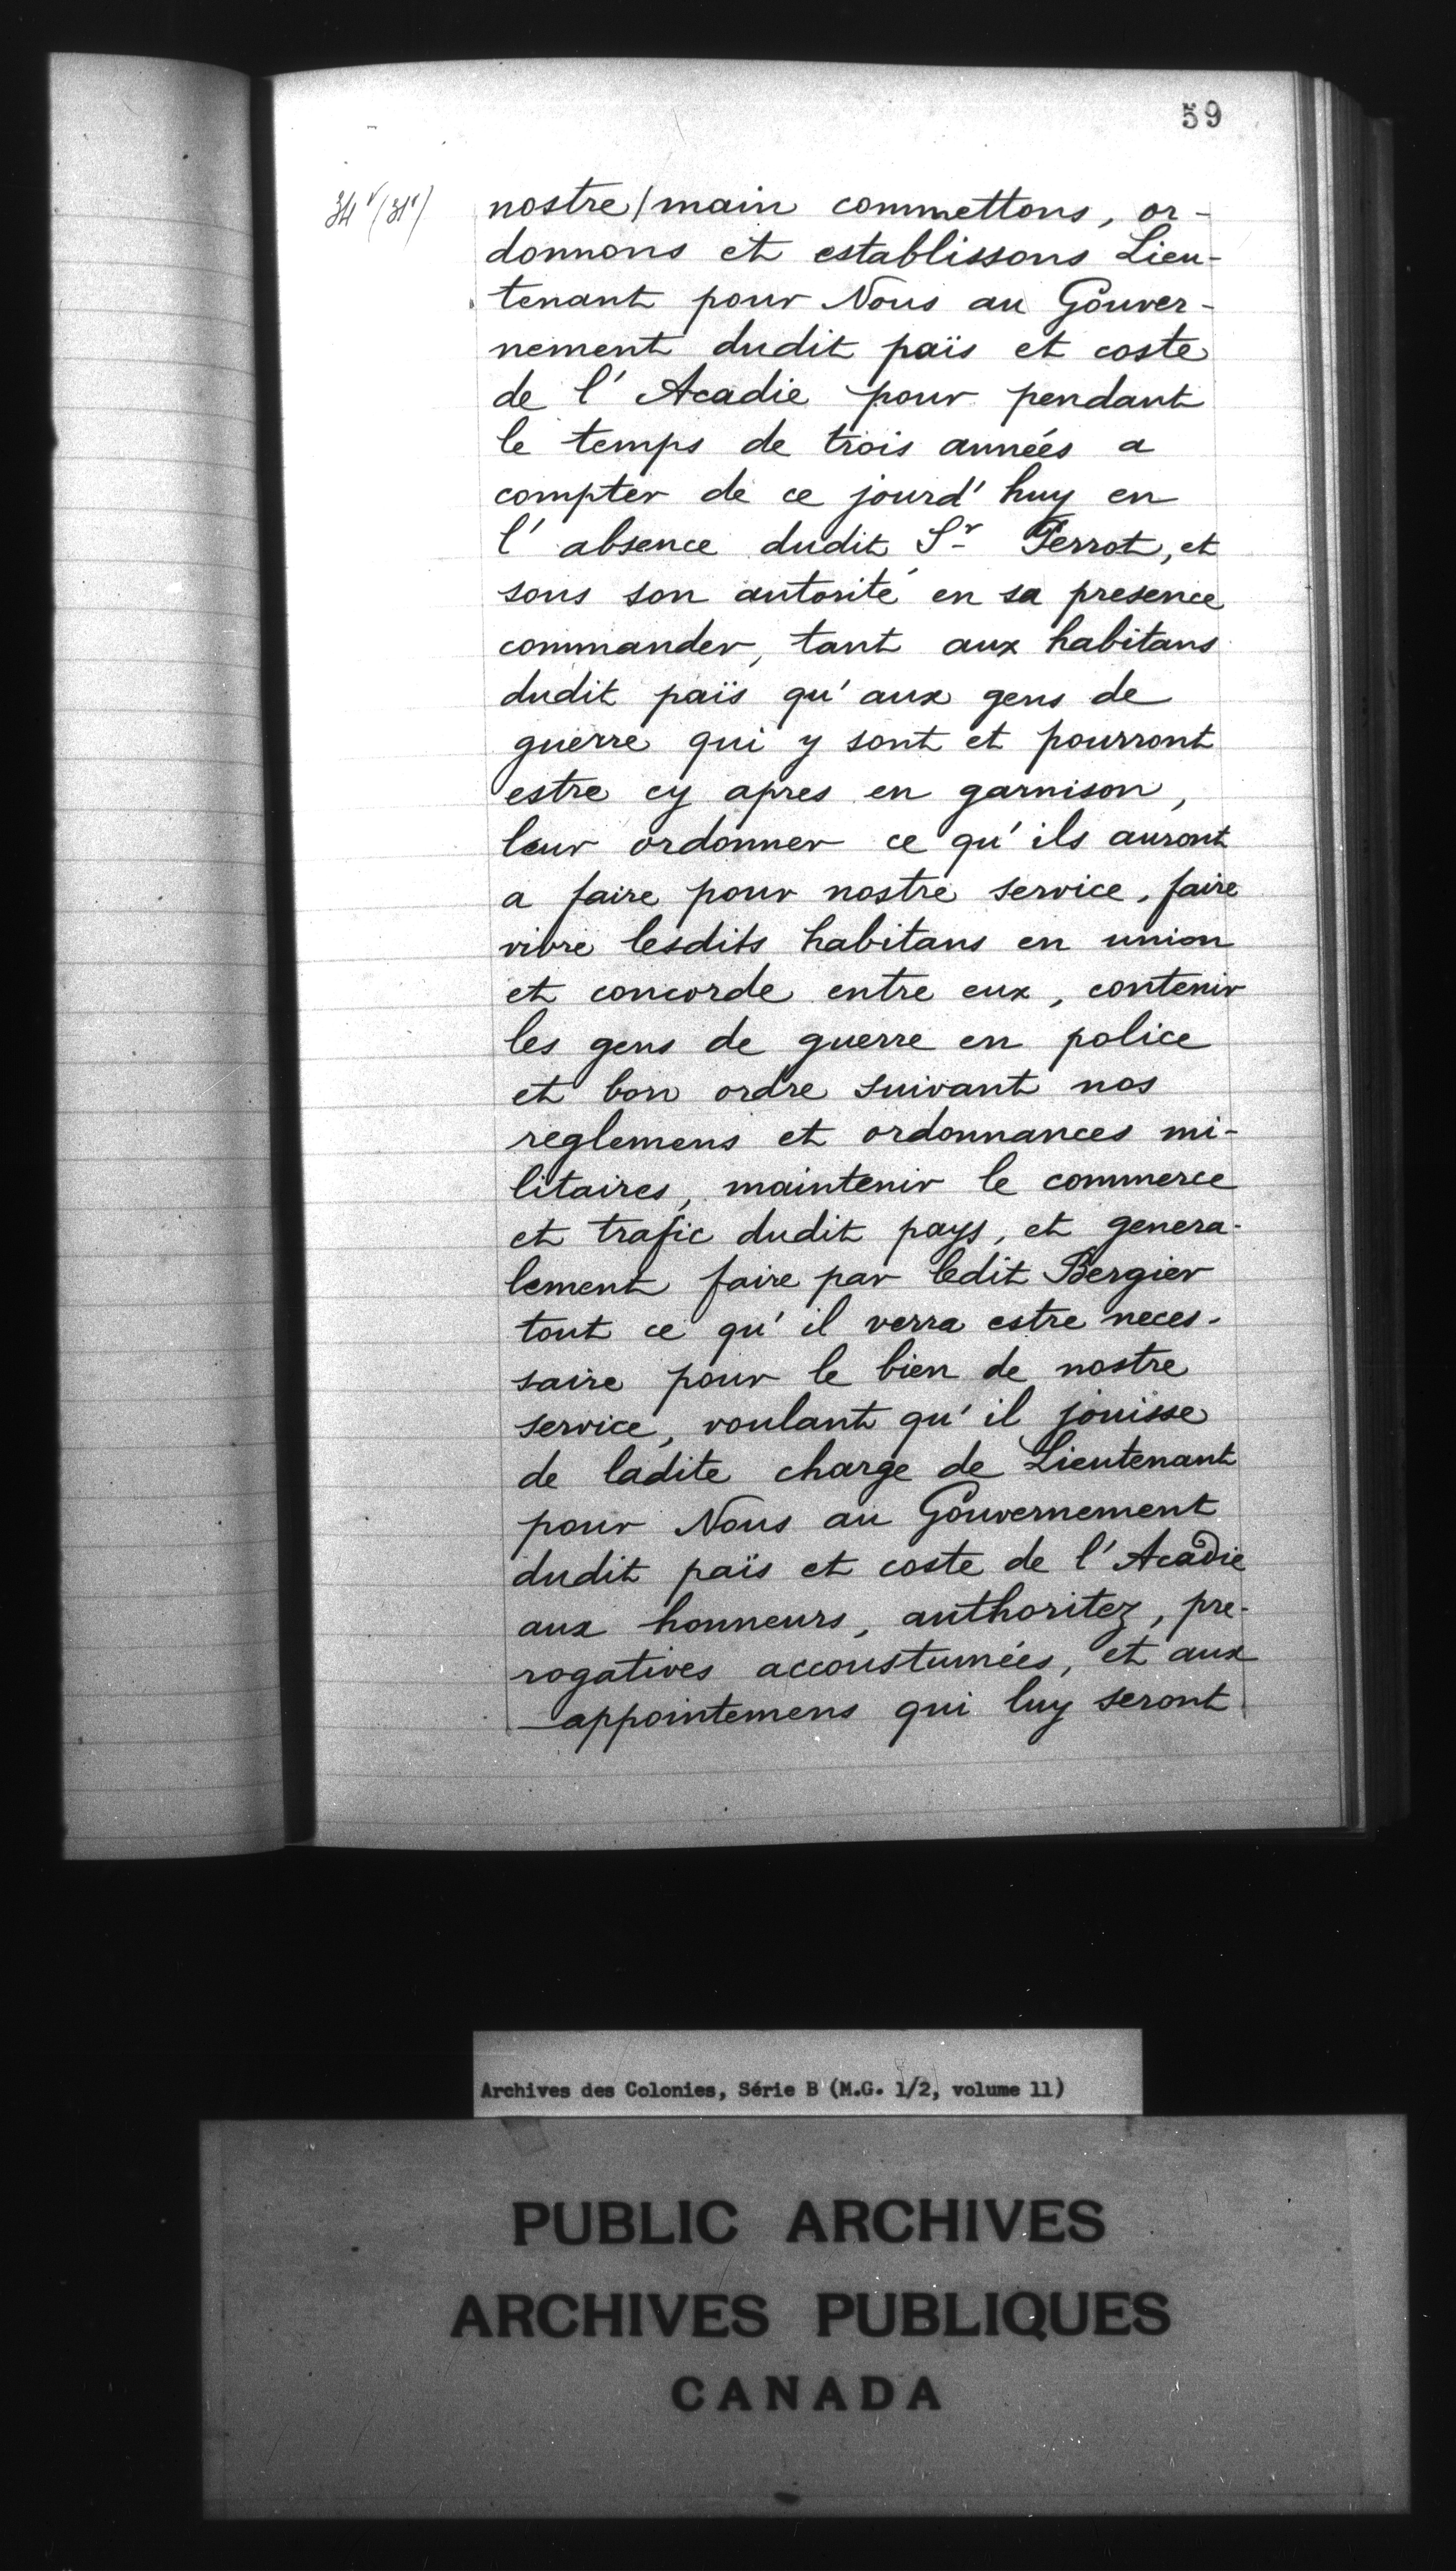 59
34v (31v)
nostre/main commettons, or-
donnons et establissons Lieu-
tenant pour Nous au Gouver-
nement dudit païs et coste
de l'Acadie pour pendant
le temps de trois années a
compter de ce jourd'huy en
l'absence dudit Sr Perrot, et
sous son autorité en sa presence
commander, tant aux habitans
dudit païs qu'aux gens de
guerre qui y sont et pourront
estre cy apres en garnison,
leur ordonner ce qu'ils auront
a faire pour nostre service, faire
vivre lesdits habitans en union
et concorde entre eux, contenir
les gens de guerre en police
et bon ordre suivant nos
reglemens et ordonnances mi-
litaires, maintenir le commerce
et trafic dudit pays, et genera-
lement faire par ledit Bergier
tout ce qu'il verra estre neces-
saire pour le bien de nostre
service, voulant qu'il jouisse
de ladite charge de Lieutenant
pour Nous au Gouvernement
dudit païs et coste de l'Acadie
aux honneurs, authoritez, pre-
rogatives accoustumées, et aux
appointemens qui luy seront
Archives des Colonies, Série B (M.G. 1/2, volume 11)
PUBLIC ARCHIVES
ARCHIVES PUBLIQUES
CANADA